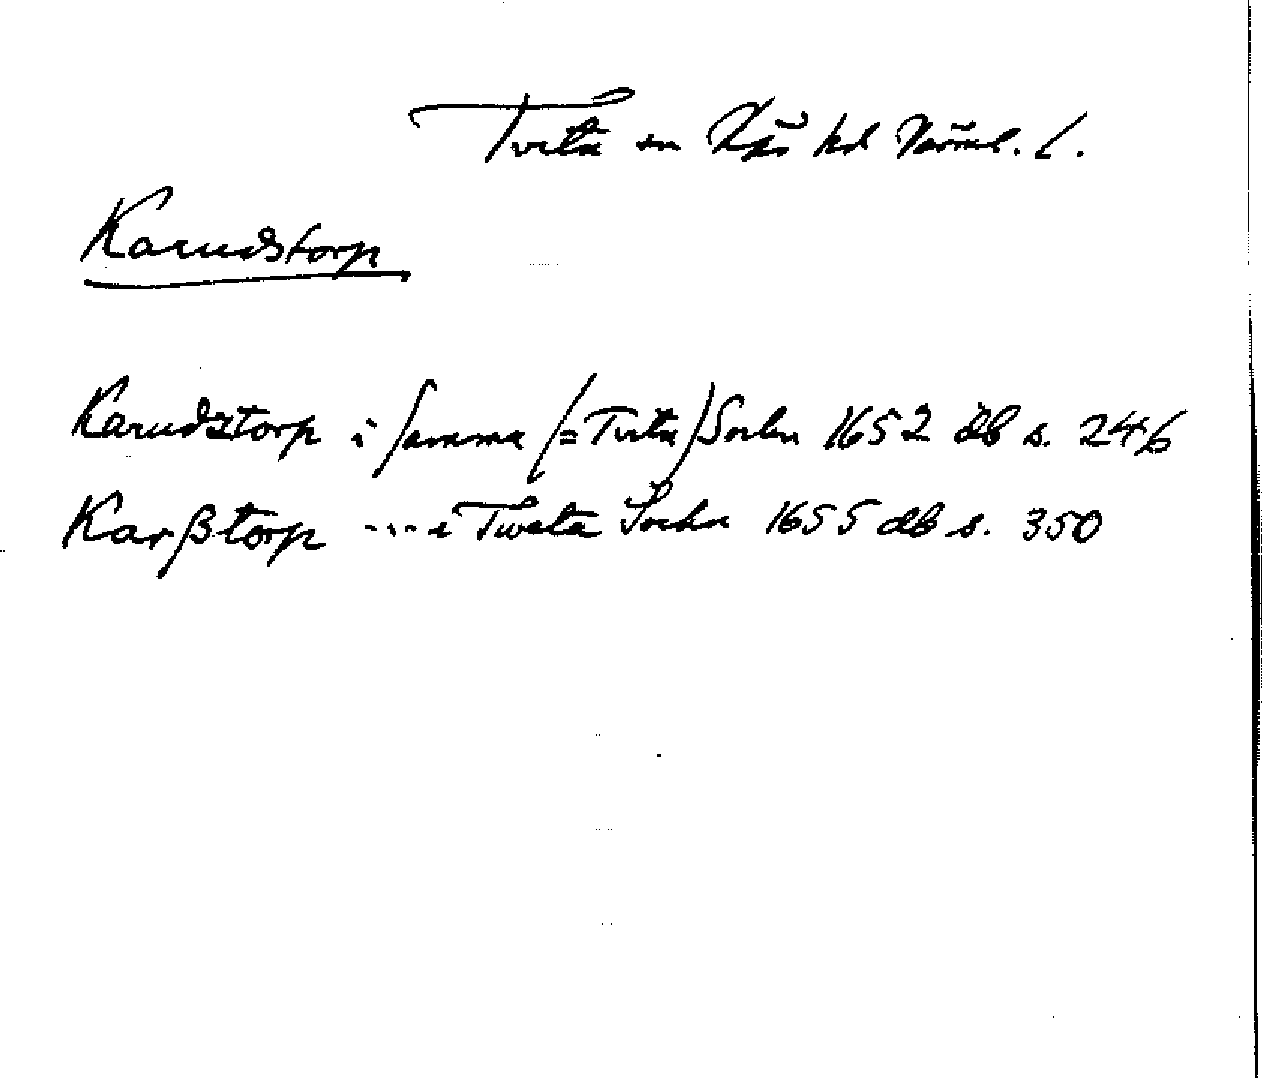 Tveta sn Näs hd Värml. l.
Karudstorp
Karudztorp i samma (= Tveta) Sochn 1652 db s. 246
Karßtorp ... i Tweta Sochn 1655 db s. 350